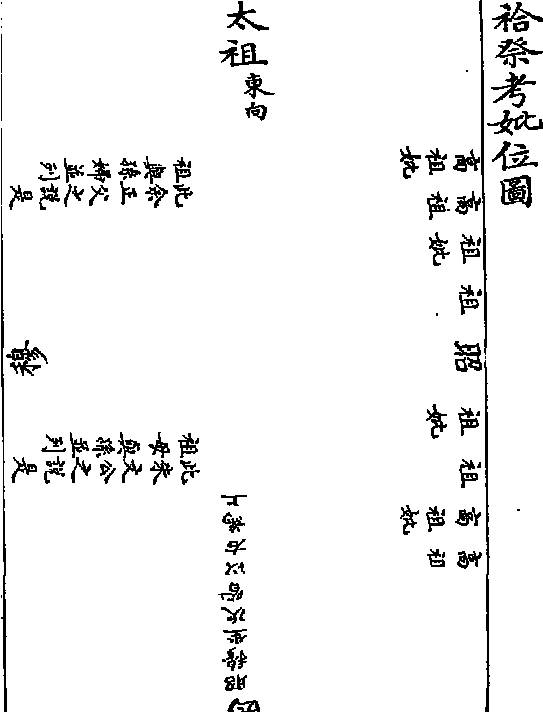 祫祭考妣位圖
太祖東向
高祖妣
高祖
祖妣
祖
昭
祖妣
祖
高祖妣
高祖
此余正父之說是
祖與孫婦並列
穆
此朱文公之說是
祖母與孫並列
昭穆坐次皆以右為上